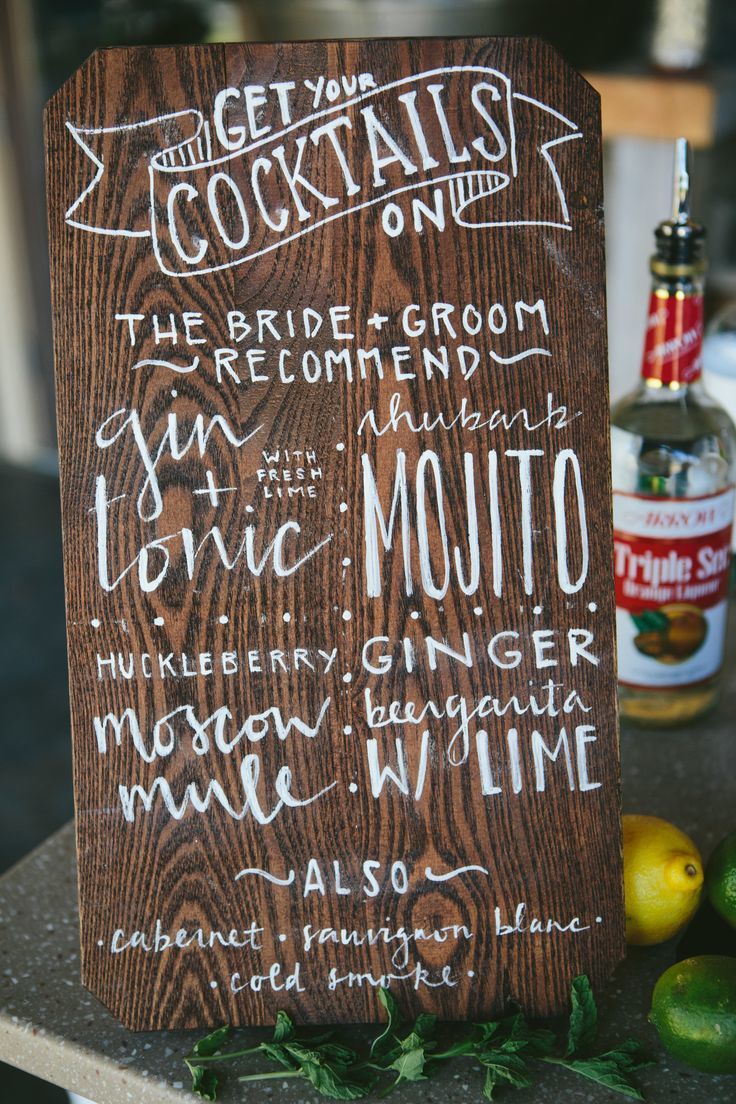 GET YOUR
COCKTAILS
ON
THE BRIDE + GROOM
RECOMMEND
gin
+
tonic
WITH
FRESH
LIME
rhubarb
MOJITO
HUCKLEBERRY
moscow
mule
GINGER
beergarita
W/ LIME
ALSO
· cabernet · sauvignon blanc ·
· cold smoke ·
ARROW
Triple Sec
Orange Liqueur